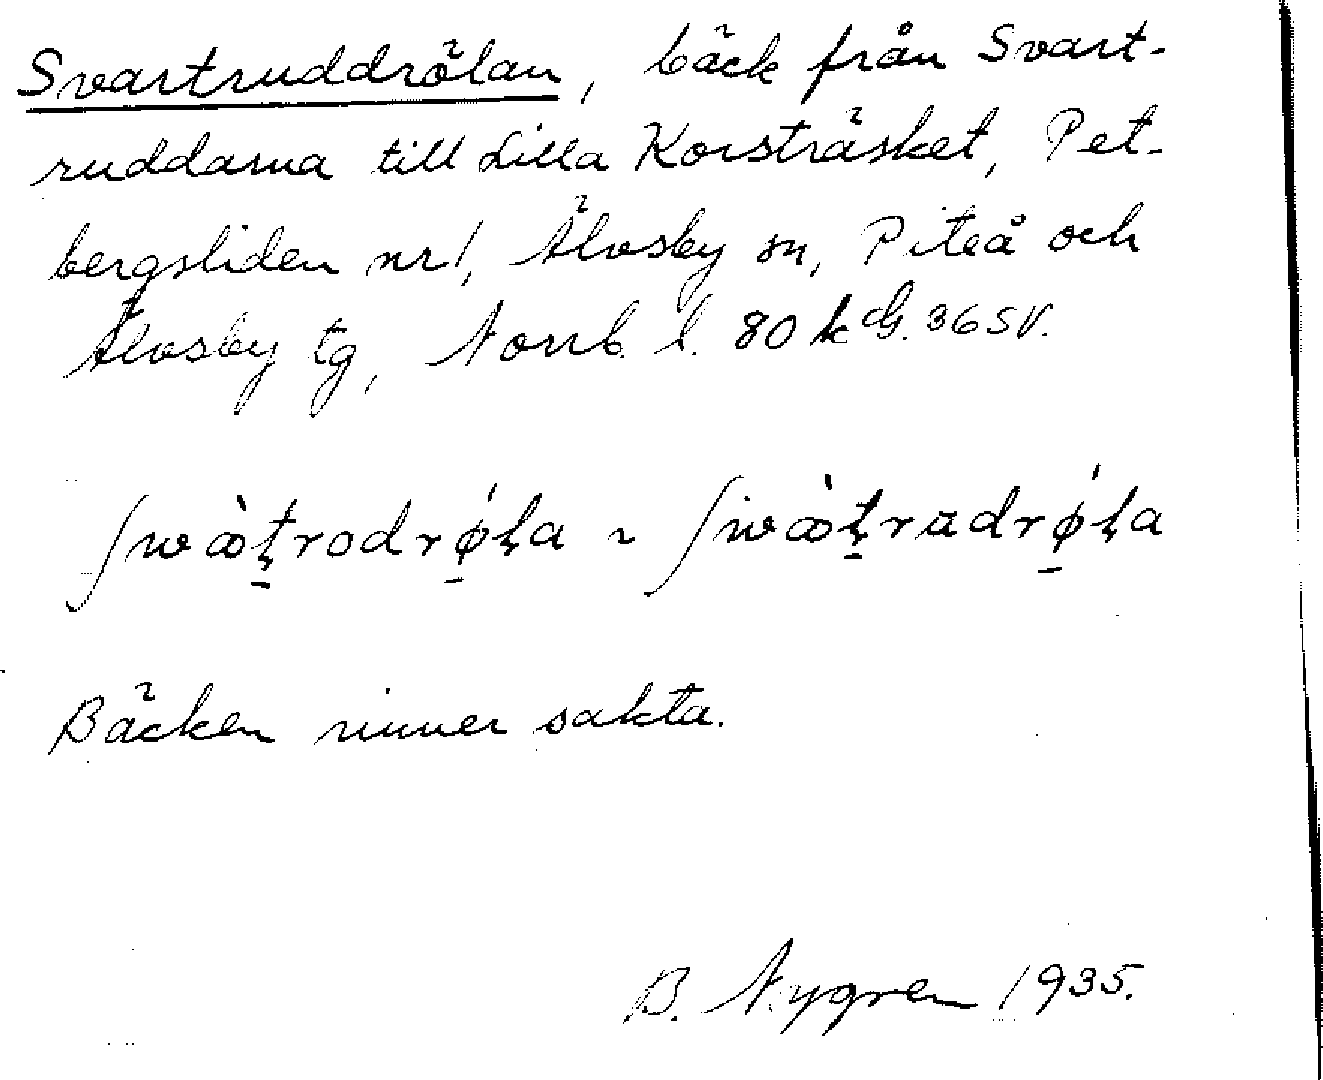 Svartruddrölan, bäck från Svart-
ruddarna till Lilla Korsträsket, Pet-
bergsliden nr 1, Älvsby sn, Piteå och
Älvsby tg, Norrb. l. 80 k cG. 36 SV.
ʃwὰṭrodrǿḷa ~ ʃwὰṭrudrǿḷa
Bäcken rinner sakta.
B. Nygren 1935.